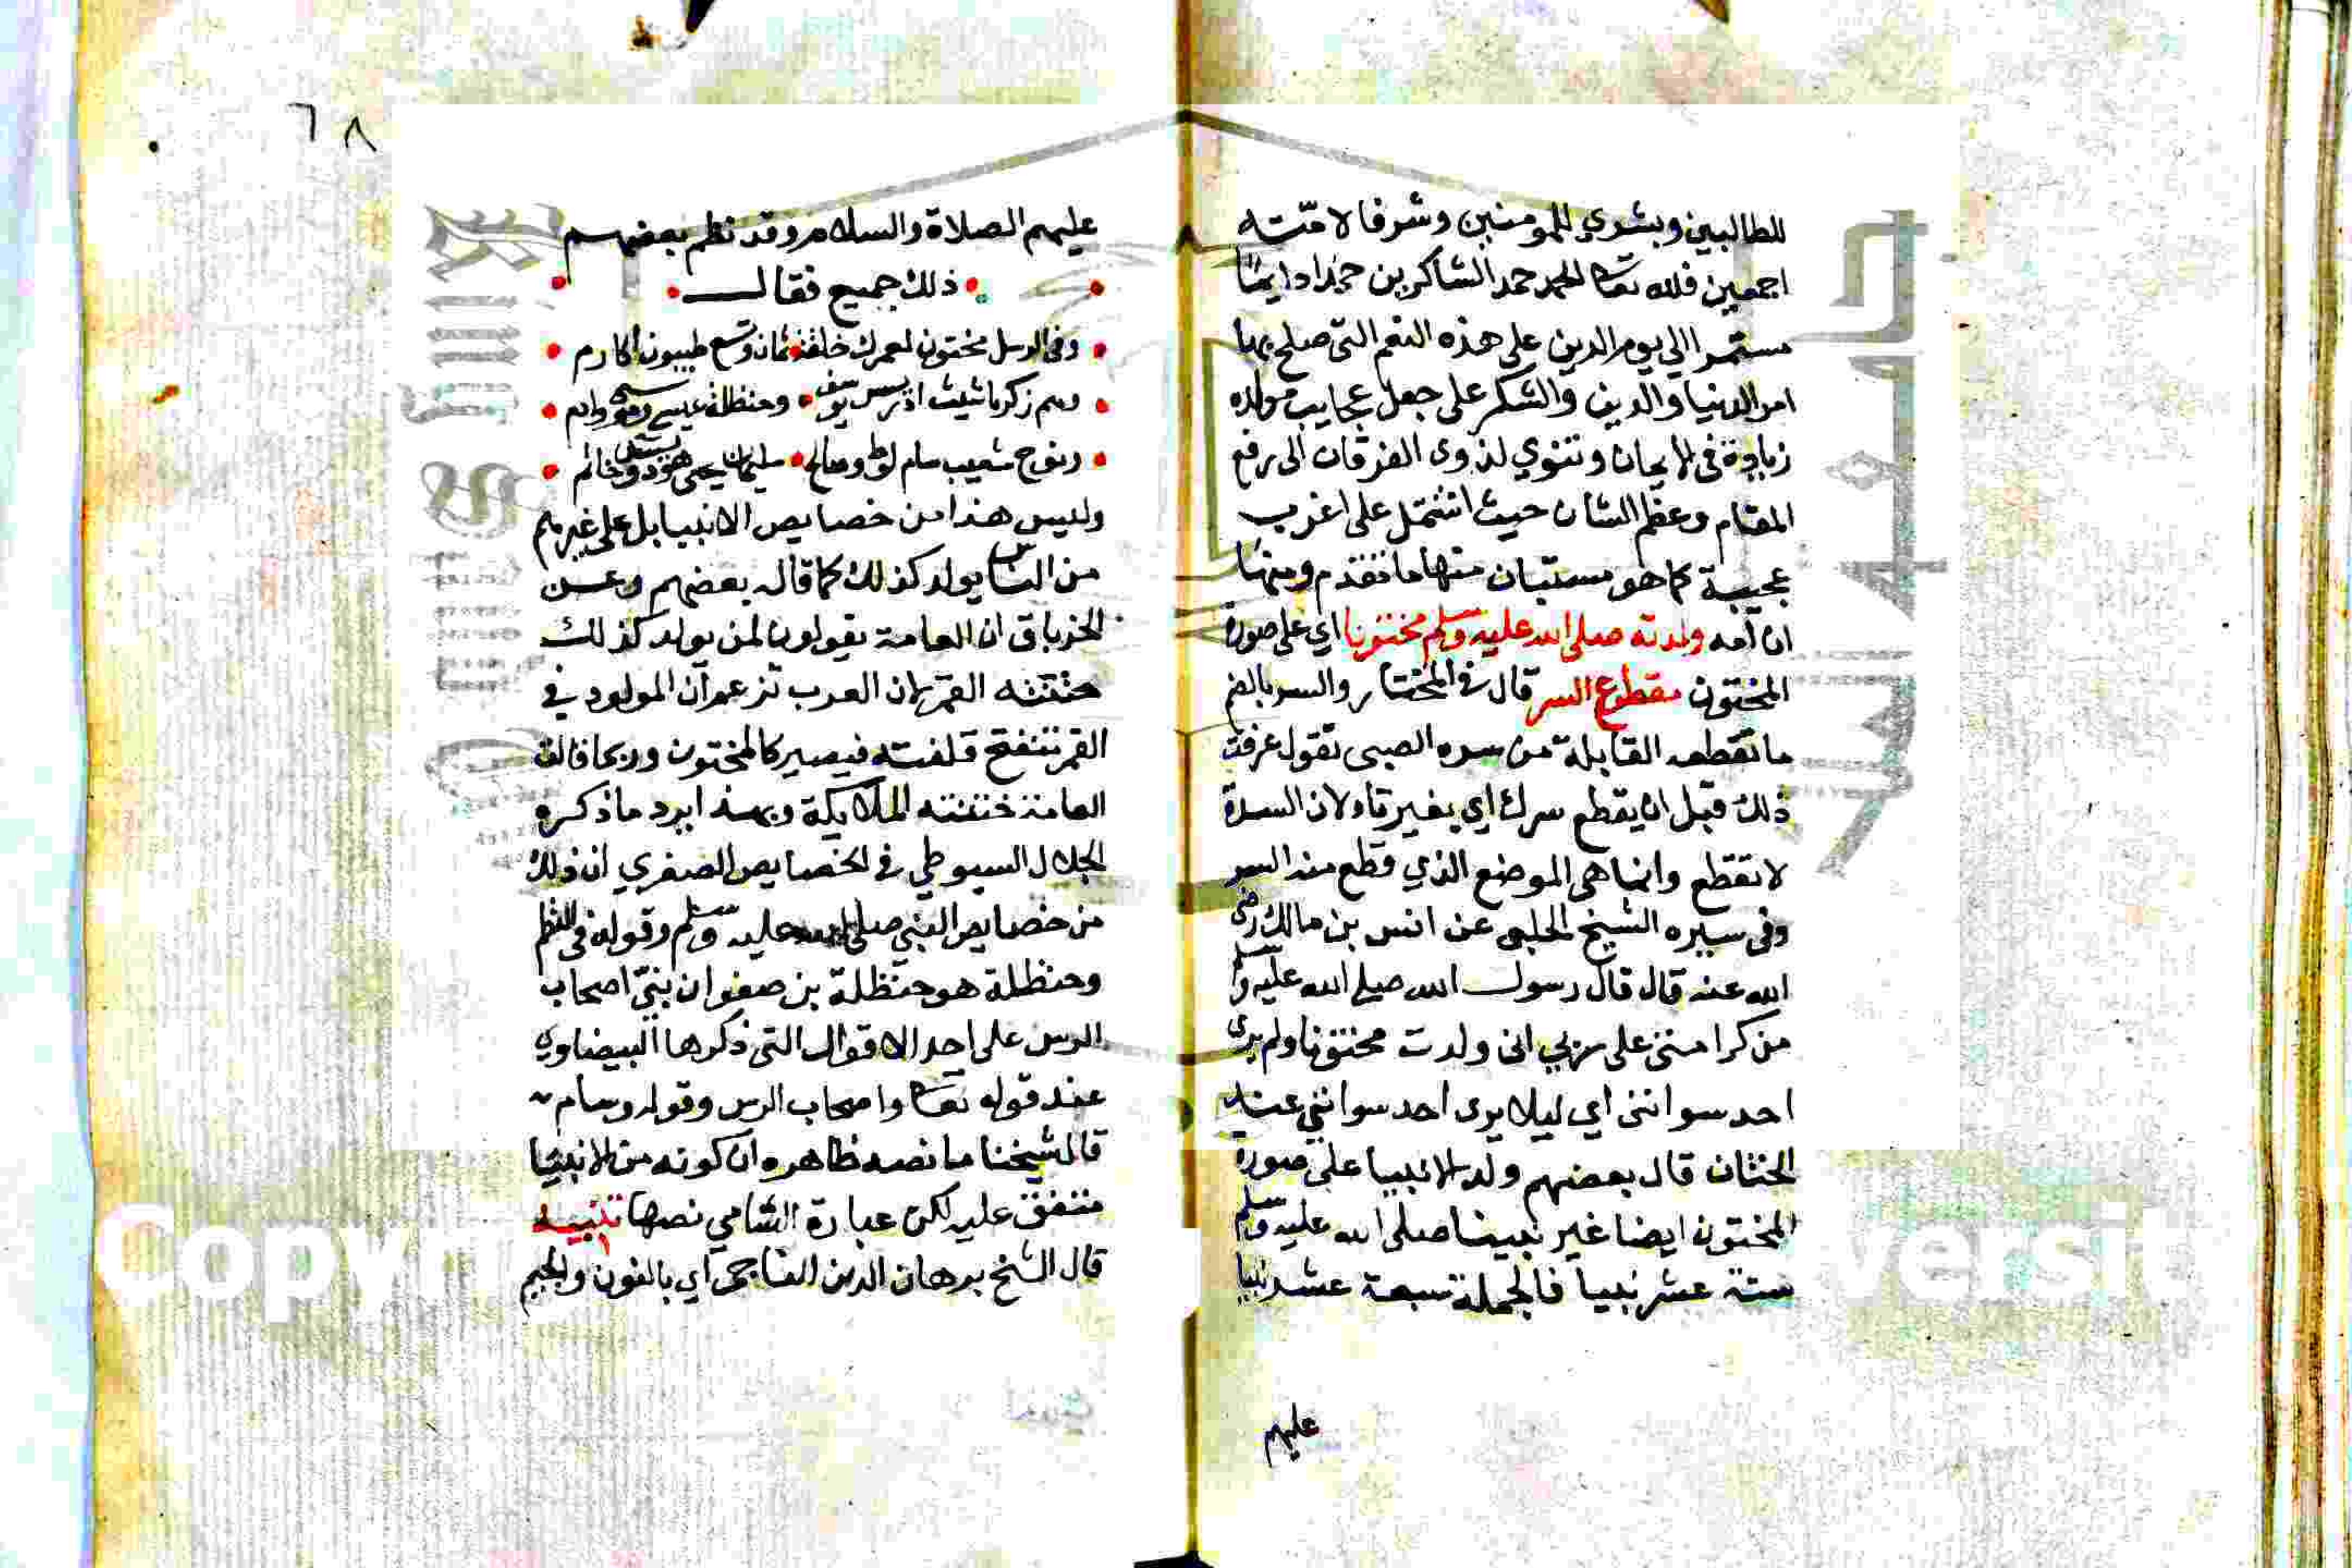 للطالبين وبشري للمومنين وشرفا لامّته
اجمعين فلله تعا الحمد حمد الشاكرين حمدا دايما
مستمرا الي يوم الدين علي هذه النعم التي صلح بها
امر الدنيا والدين والشكر على جعل عجايب مولده
زيادة في الايمان وتقوي لذوى الفرقان الى رفع
المقام وعظم الشان حيث اشتمل على اغرب
عجيبة كما هو مستبان منها ما تقدم ومنها
ان امه ولدته صلى الله عليه وسلم مختونا اي على صورة
المختون مقطوع السر قال في المختار والسر بالضم
ما تقطعه القابلة من سره الصبى تقول عرفت
ذلك قبل ان يقطع سرك اي بغير تاء ولان السرة
لا تقطع وانما هى الموضع الذي قطع منه السر
وفى سيره الشيخ الحلبى عن انس بن مالك رضى
الله عنه قال قال رسول الله صلى الله عليه وسلم
من كرامتى على ربي انى ولدت مختونا ولم يرى
احد سواتنى اي ليلا يرى احد سواتني عند
الختان قال بعضهم ولد الانبيا على صورة
المختون ايضا غير نبينا صلى الله عليه وسلم
ستة عشر نبيا فالجملة سبعة عشر نبيا
عليهم
٦٨
عليهم الصلاة والسلام وقد نظم بعضهم
ذلك جميع فقال
وفى الرسل مختون لعمرك خلقة ثمان وتسع طيبون اكارم
وهم زكريا شيث ادريس يوسف وحنظلة عيسى وموسى وادم
ونوح شعيب سام لوط وصالح سليمان يحيى هود يس خاتم
وليس هذا من خصايص الانبيا بل على غيرهم
من الناس يولد كذلك كما قاله بعضهم وعن
الخرباق ان العامة يقولون لمن يولد كذلك
ختنه القمر لان العرب تزعم ان المولود في
القمر تنفتح قلفته فيصير كالمختون وربما قالت
العامة ختنته الملايكة وبهذا يرد ما ذكره
الجلال السيوطي في الخصايص الصغري ان ذلك
من خصايص النبي صلى الله عليه وسلم وقوله فى النظم
وحنظلة هو حنظلة بن صفوان نبيّ اصحاب
الرس على احد الاقوال التى ذكرها البيضاوي
عند قوله تعا واصحاب الرس وقوله وسام
قال شيخنا ما نصه ظاهره ان كونه من الانبيا
متفق عليه لكن عبارة الشامي نصها تنبيه
قال الشخ برهان الدين الناجى اي بالنون والجيم